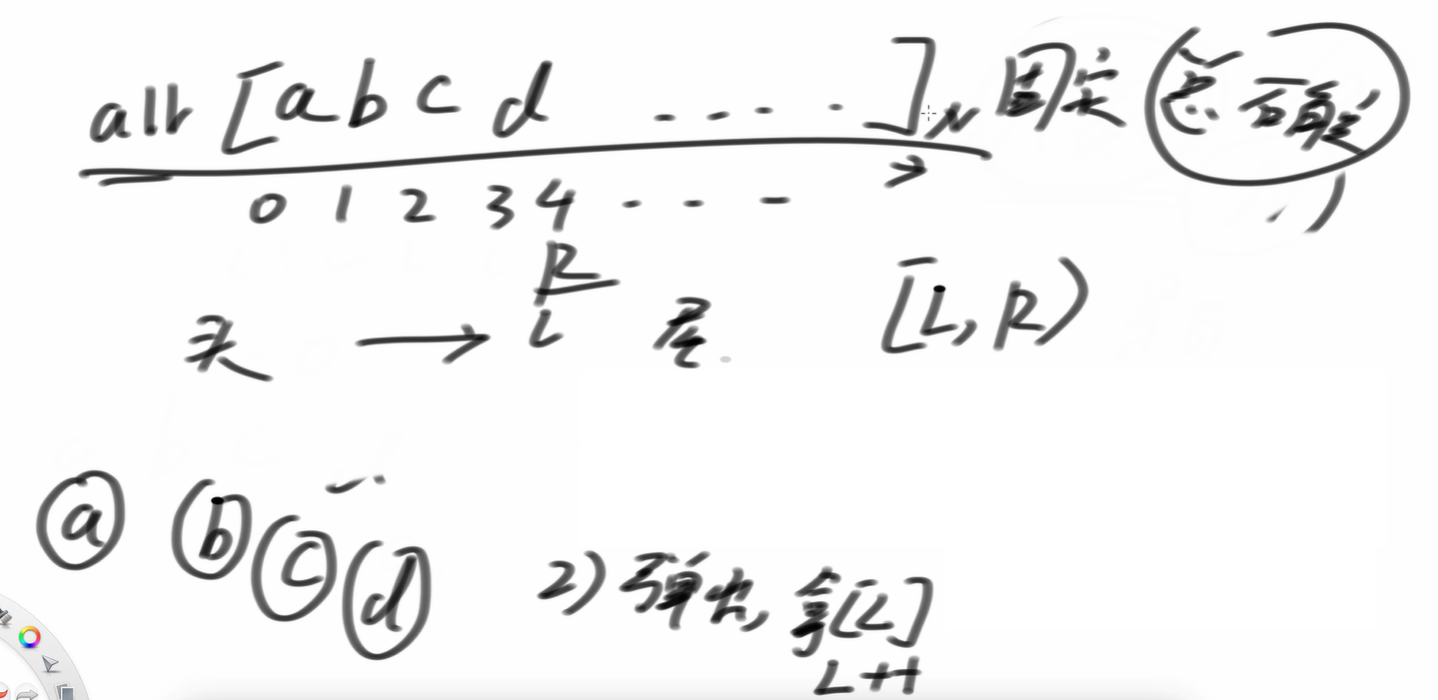 arr [a b c d ....] N 固定
0 1 2 3 4 ...
R
头 → L 尾 [L, R)
a b c d
2) 弹出, 拿[L]
L++